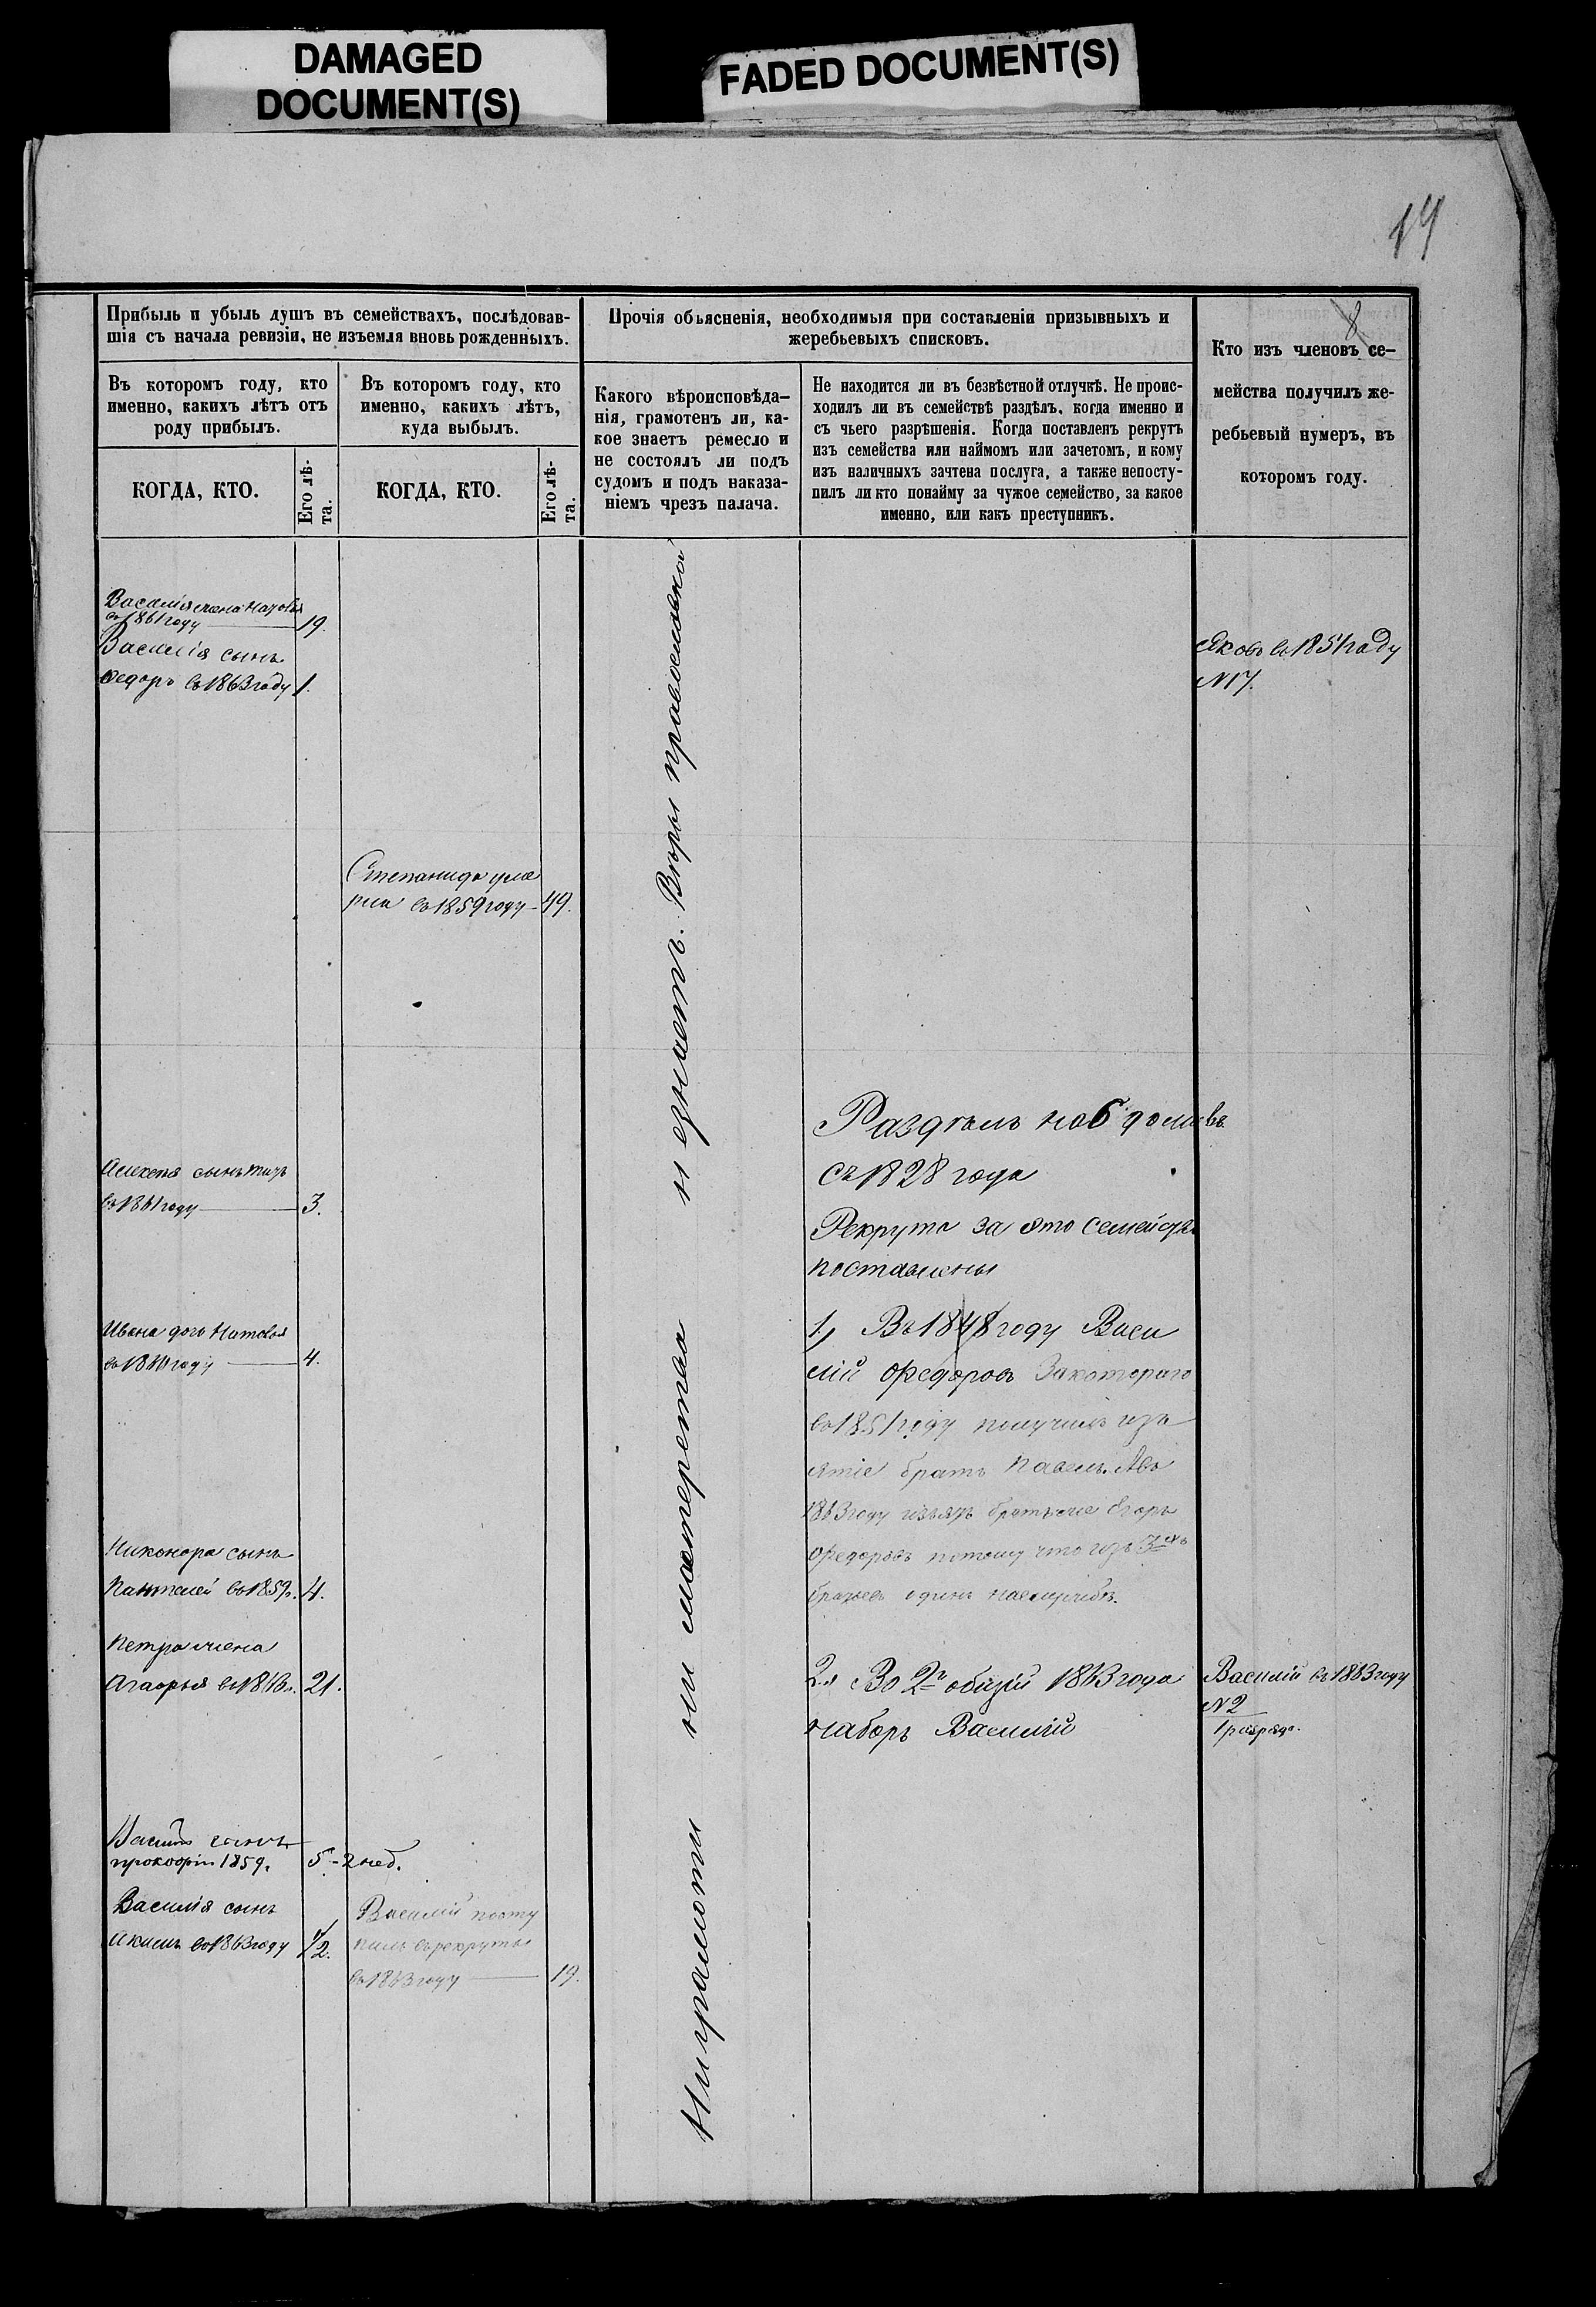 DAMAGED
DOCUMENT(S)
FADED DOCUMENT(S)
19
8
Прибыль и убыль душъ въ семействахъ, послѣдовав-
шія съ начала ревизіи, не изъемля вновь рожденныхъ.
Въ которомъ году, кто
именно, какихъ лѣтъ отъ
роду прибылъ.
Въ которомъ году, кто
именно, какихъ лѣтъ,
куда выбылъ.
КОГДА, КТО.
Его лѣ-
та.
КОГДА, КТО.
Его лѣ-
та.
Прочія объясненія, необходимыя при составленіи призывныхъ и
жеребьевыхъ списковъ.
Какого вѣроисповѣда-
нія, грамотенъ ли, ка-
кое знаетъ ремесло и
не состоялъ ли подъ
судомъ и подъ наказа-
ніемъ чрезъ палача.
Не находится ли въ безвѣстной отлучкѣ. Не проис-
ходилъ ли въ семействѣ раздѣлъ, когда именно и
съ чьего разрѣшенія. Когда поставленъ рекрутъ
изъ семейства или наймомъ или зачетомъ, и кому
изъ наличныхъ зачтена послуга, а также непосту-
пилъ ли кто понайму за чужое семейство, за какое
именно, или какъ преступникъ.
Кто изъ членовъ се-
мейства получилъ же-
ребьевый нумеръ, въ
которомъ году.
Василія жена
въ 1861 году 19.
Василія сынъ
Федоръ въ 1863 году 1.
Яковъ въ 1851 году
N 17.
Степанида уме
рла въ 1859 году 49.
Ни грамоти ни мастерства незнаетъ. Вѣры православной
Раздѣлъ на 6 домовъ
съ 1828 года
Рекрута за это семейств
поставлены
Алексея сынъ
въ 1861 году 3.
Ивана дочь
году 4.
1, Въ 1848 году Васи
лій Федоровъ Закотораго
въ 1851 году получилъ изъ
ятіе братъ Павелъ. Авъ
1863 году изъятъ братъ Егоръ
Федоровъ потому что изъ 3-хъ
братьевъ одинъ
Никонора сынъ
Пантелей въ 1859. 4.
Петра жена
Агафья 21.
2, Во 2й общій 1863 года
наборъ Василій
Василій въ 1863 году
N 2
1 разряда.
сынъ
Прокофій 1859. 5 - 2 нед.
Василія сынъ
Акимъ въ 1863 году 1/2.
Василій посту
пилъ въ рекруты
въ 1863 году 19.